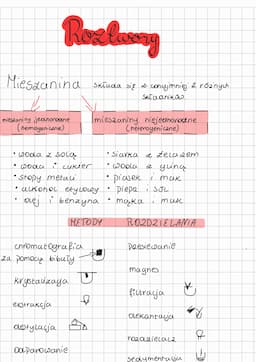 Roztwory
Mieszanina składa się z conajmniej z różnych
składników
mieszaniny jednorodne (homogeniczne)
mieszaniny niejednorodne (heterogeniczne)
• woda z solą
• woda i cukier
• stopy metali
• alkohol etylowy
• olej i benzyna
• siarka z żelazem
• woda z gliną
• piasek i mak
• pieprz i sól
• mąka i mak
METODY ROZDZIELANIA
chromatografia
za pomocą bibuły
krystalizacja
ekstrakcja
destylacja
odparowanie
przesiewanie
magnes
filtracja
dekantacja
rozdzielacz
sedymentacja